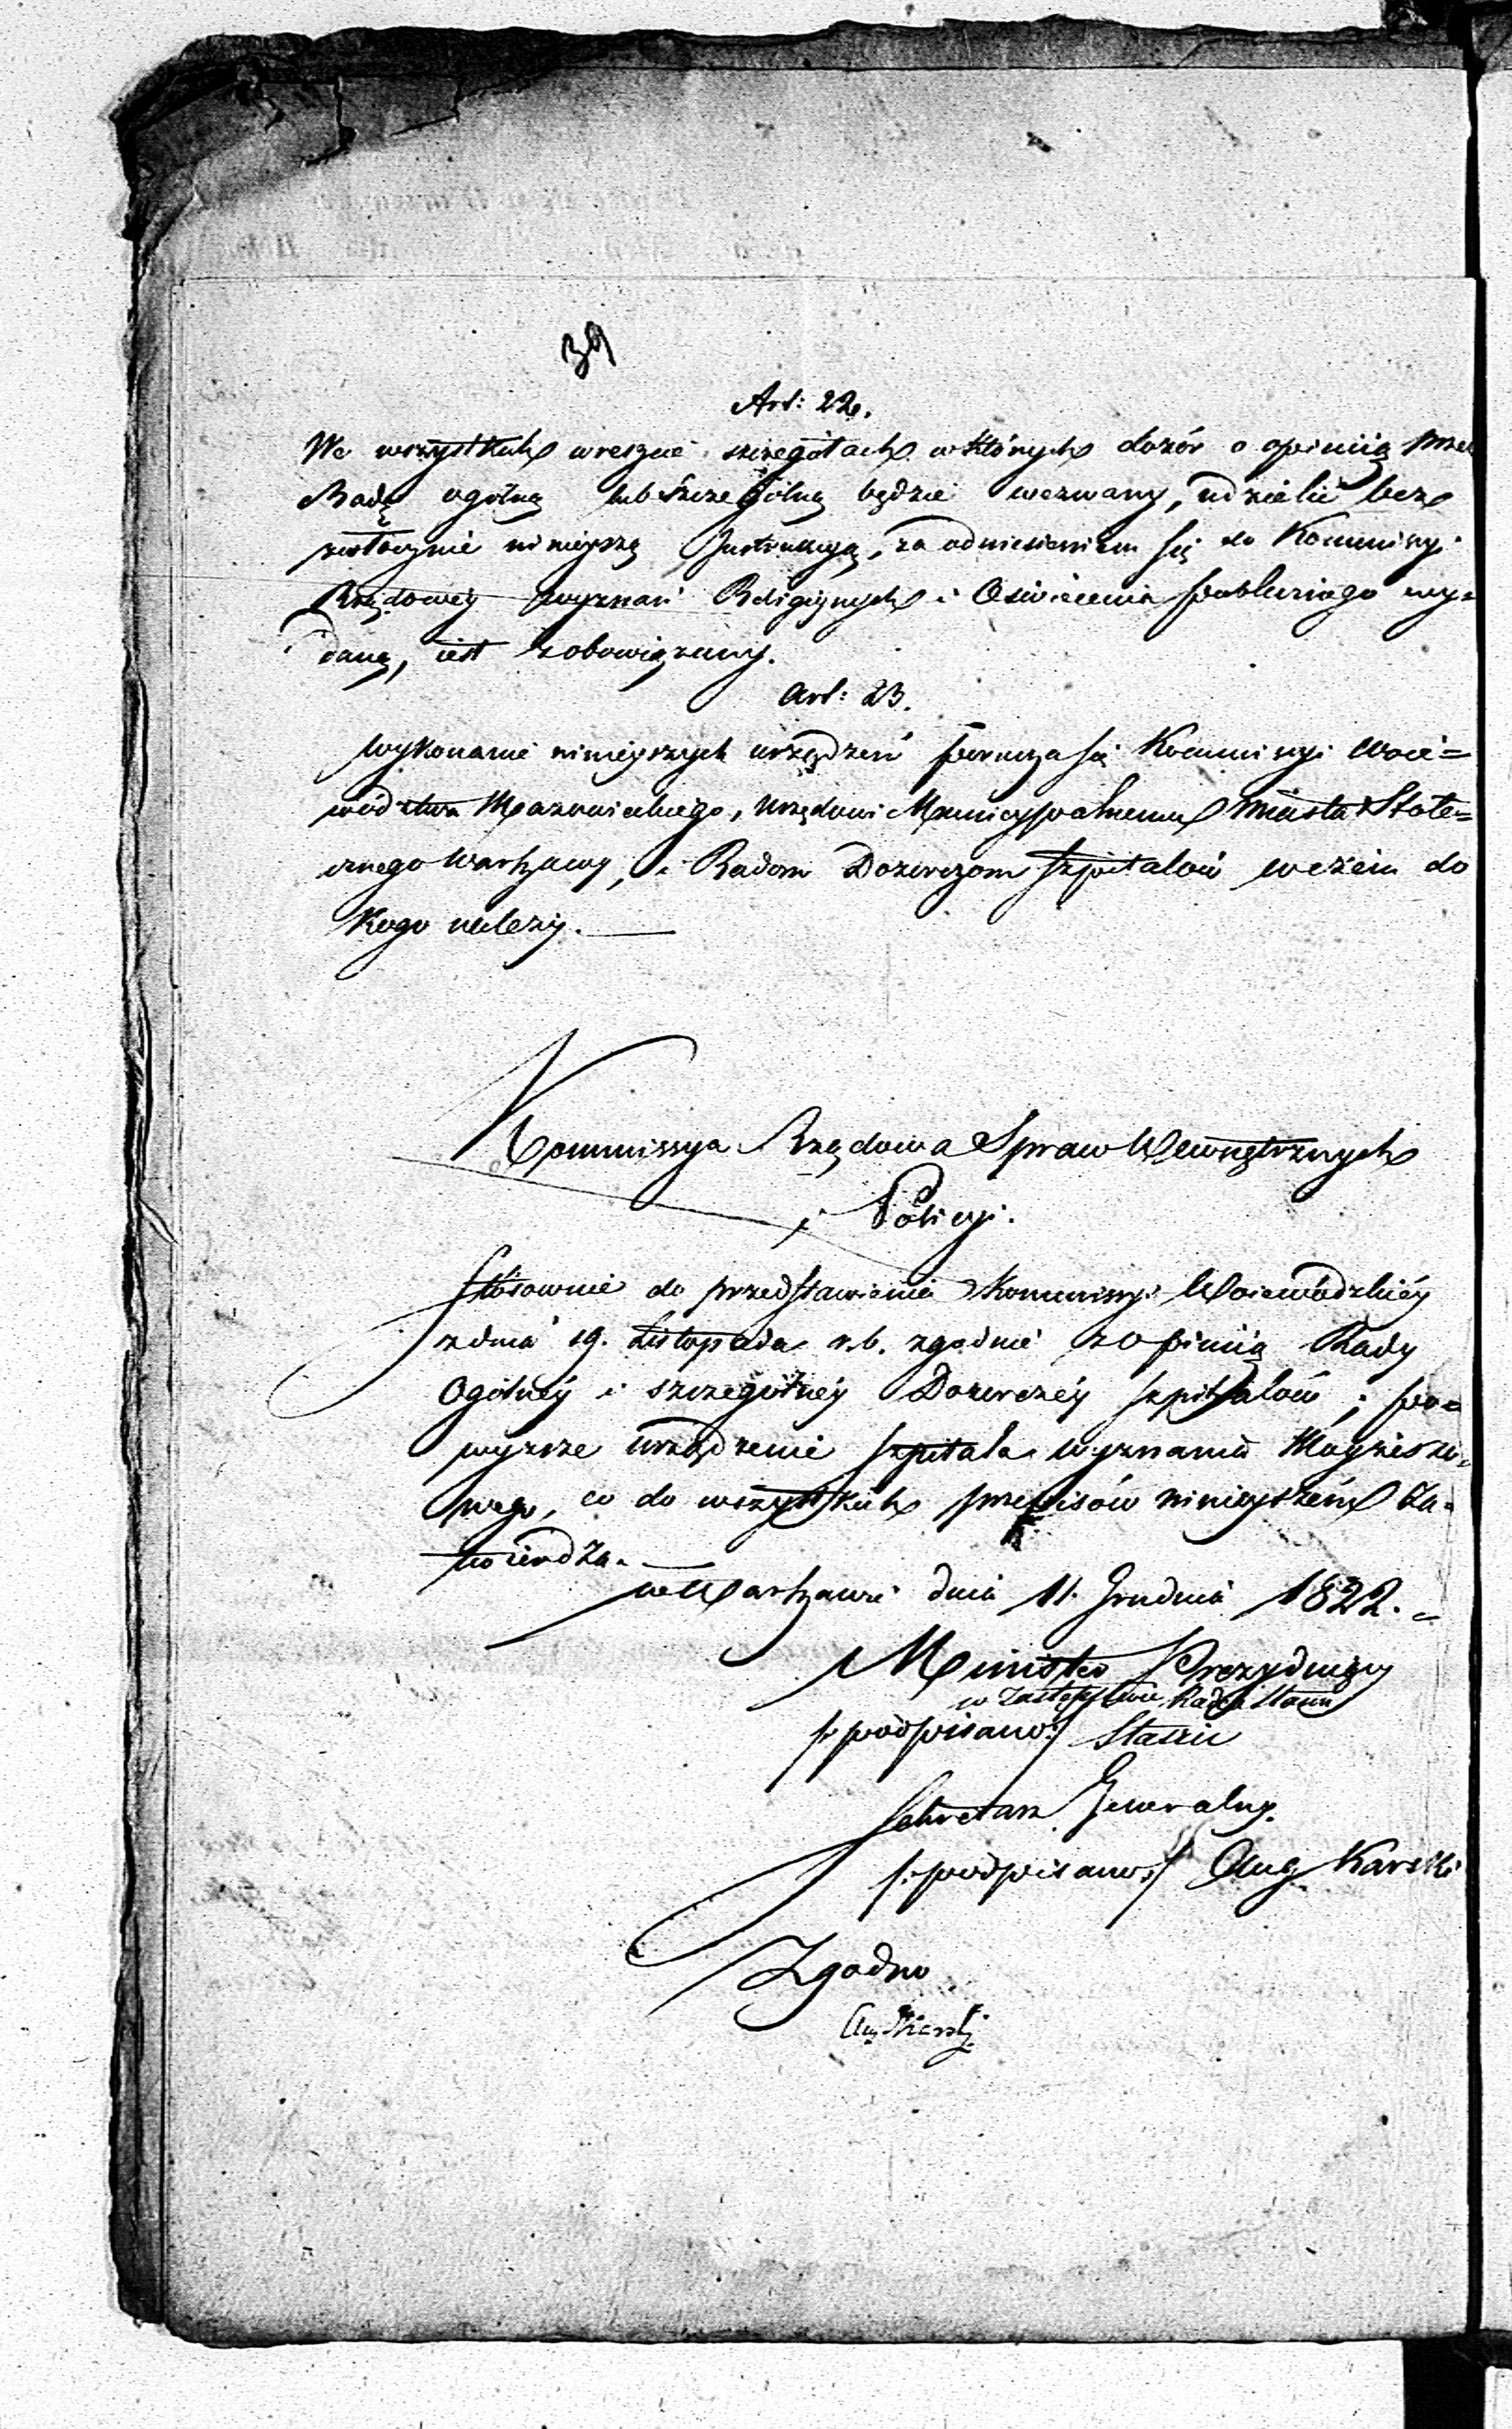 39
Art: 22.
We wszystkich wreszcie szczegółach w których dozór o opinią przez
Radę ogólną lub Szczególną będzie wezwany, udzielić bez
zwłocznie ninieyszą Instrukcyą, za odniesieniem się do Kommissyi
Rządowéy wyznań Religiynych i Oświecenia publicznego wy=
daną, iest zobowiązany.
Art: 23.
Wykonanie ninieyszych urządzeń porucza się Kommissyi Woie=
wództwa Mazowieckiego, Urzędowi Municypalnemu Miasta Stołe=
cznego Warszawy, i Radom Dozorczom szpitalów w czém do
Kogo należy.
Kommissya Rządowa Spraw Wewnętrznych
i Policyi.
Stósownie do przedstawienia Kommissyi Woiewódzkiéy
z dnia 19. Listopada r. b. zgodnie z opinią Rady
Ogólnéy i szczegółnéy Dozorczéy szpitalów, po=
wyższe urządzenie szpitala wyznania Moyżeszo=
wego, co do wszystkich przepisów ninieyszém Za=
twierdza.
w Warszawie dnia 11. Grudnia 1822.
Minister Prezyduiący
w Zastępstwie Radca Stanu
/: podpisano :/ Staszic
Sekretarz Generalny.
/: podpisano :/ Aug Karski
Zgodno
Aug Karski